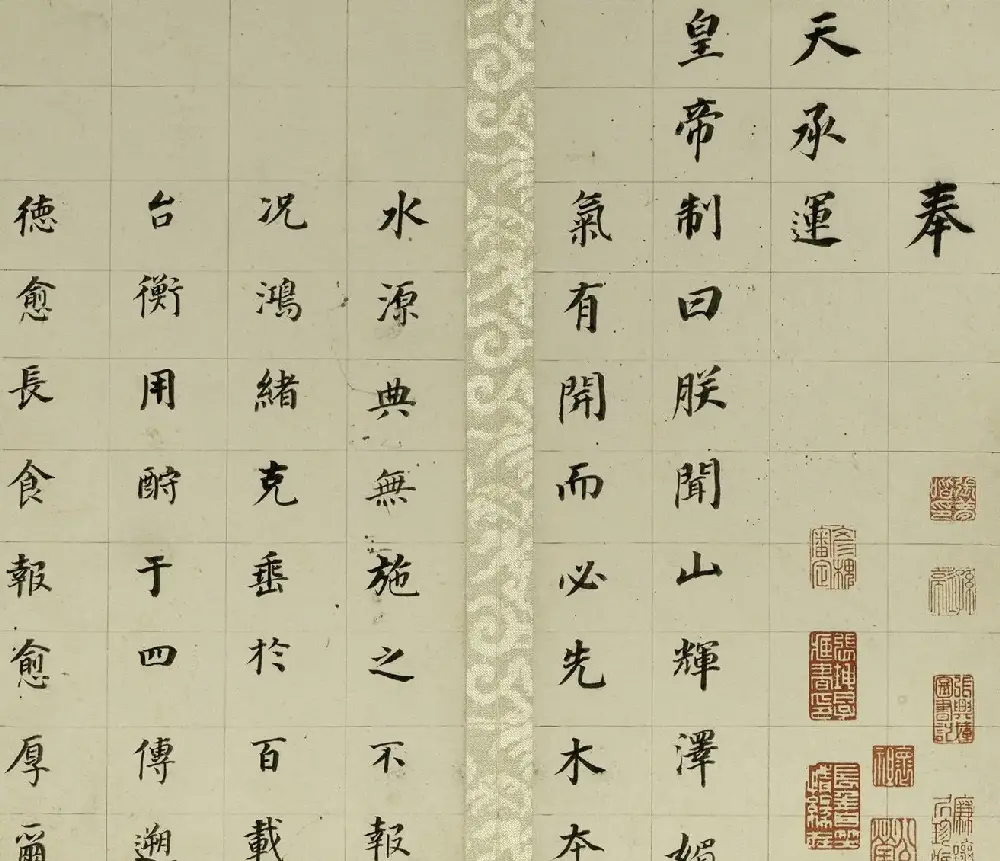 奉
天承運
皇帝制曰朕聞山輝澤媚
氣有開而必先木本
水源典無施之不報
况鴻緒克垂於百載
台衡用酧于四傳遡
德愈長食報愈厚爾